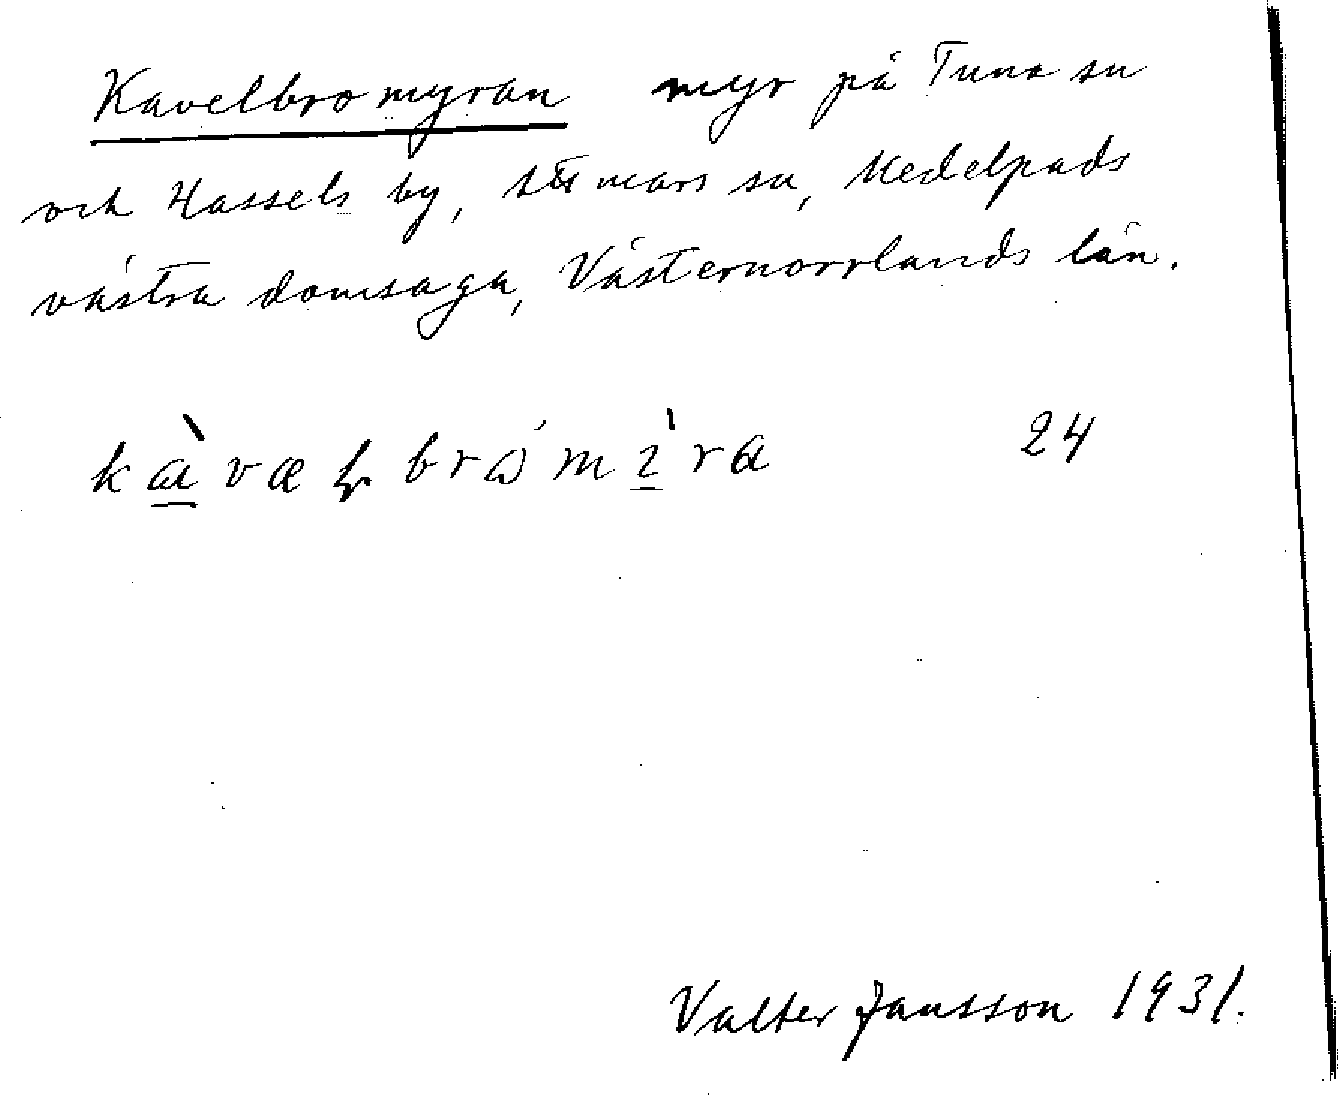 Kavelbromyran myr på Tuna sn
och Hassels by, Attmars sn, Medelpads
västra domsaga, Västernorrlands län.
24
Valter Jansson 1931.